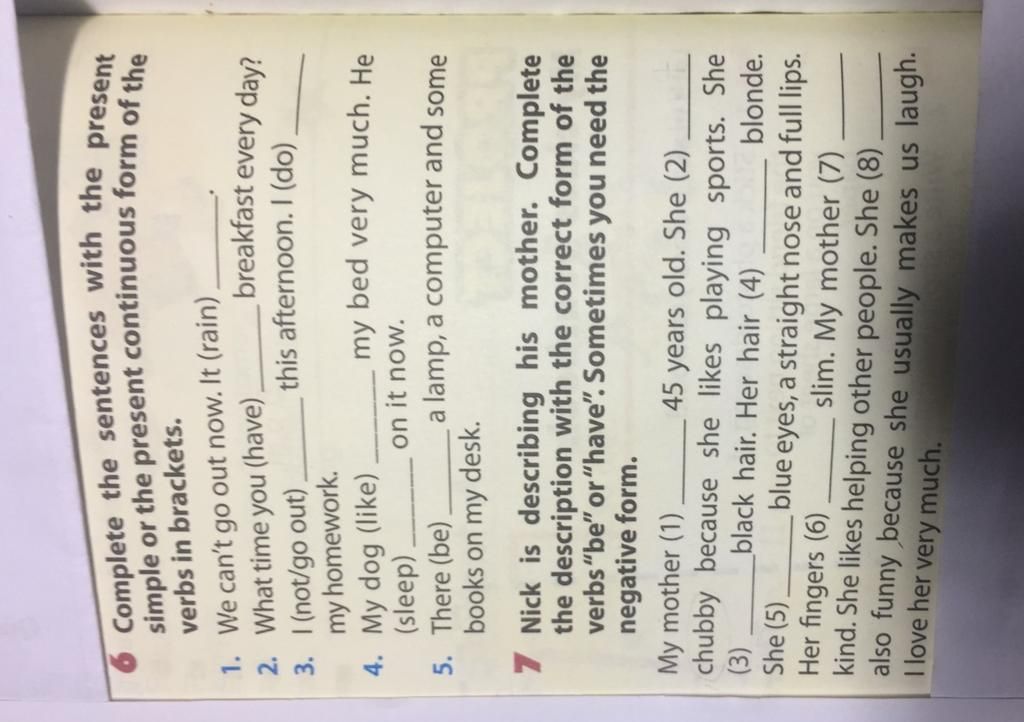 6 Complete the sentences with the present
simple or the present continuous form of the
verbs in brackets.
1. We can't go out now. It (rain) ______.
2. What time you (have) ______ breakfast every day?
3. I (not/go out) ______ this afternoon. I (do) ______
my homework.
4. My dog (like) ______ my bed very much. He
(sleep) ______ on it now.
5. There (be) ______ a lamp, a computer and some
books on my desk.
7 Nick is describing his mother. Complete
the description with the correct form of the
verbs "be" or "have". Sometimes you need the
negative form.
My mother (1) ______ 45 years old. She (2) ______
chubby because she likes playing sports. She
(3) ______ black hair. Her hair (4) ______ blonde.
She (5) ______ blue eyes, a straight nose and full lips.
Her fingers (6) ______ slim. My mother (7) ______
kind. She likes helping other people. She (8) ______
also funny because she usually makes us laugh.
I love her very much.